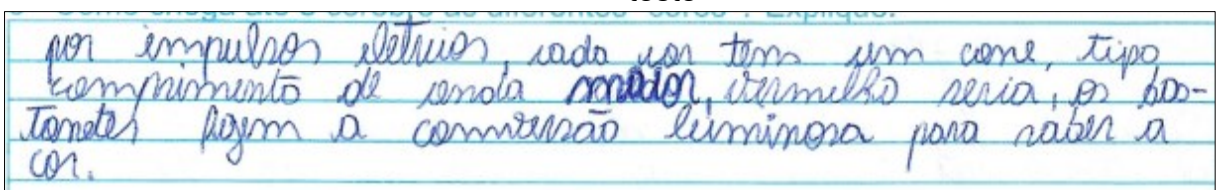 por impulsos eletricos, cada cor tem um cone, tipo
comprimento de onda maior, vermelho seria, os bas-
tonetes fazem a conversão luminosa para saber a
cor.